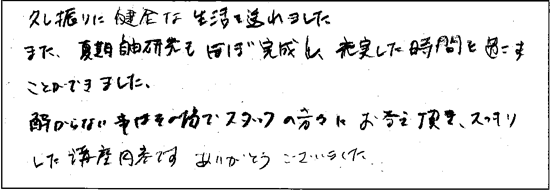 久し振りに健全な生活を送れました
また、夏期自由研究もほぼ完成し、充実した時間を過ごす
ことができました。
解からない事はその場でスタッフの方々にお答え頂き、スッキリ
した講座内容です ありがとうございました